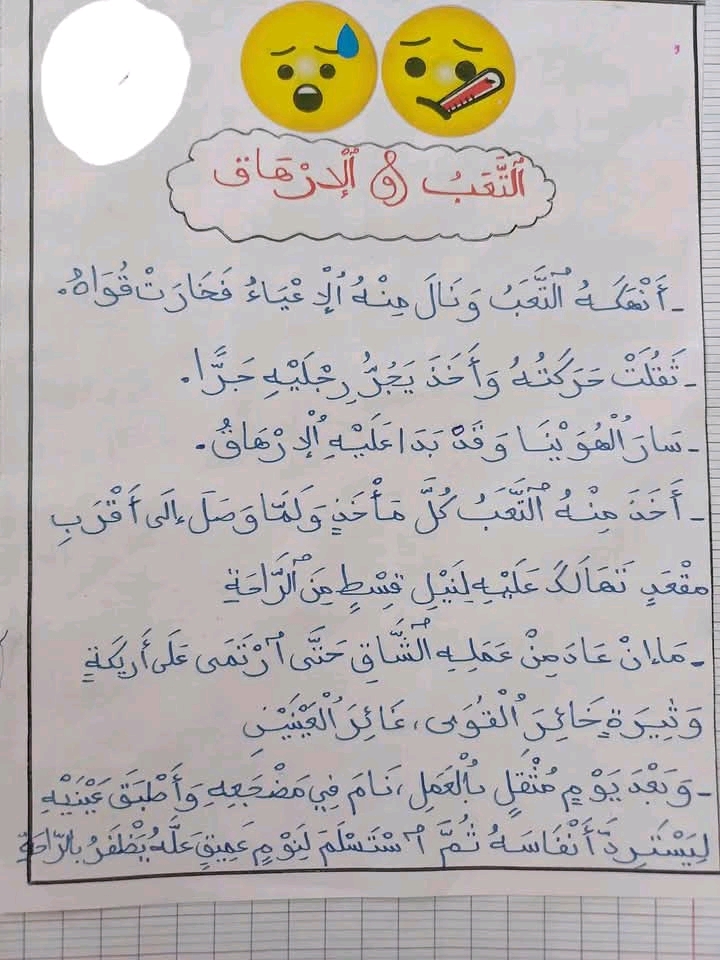 اَلتَّعَبُ وَ اَلْإِرْهَاق
- أَنْهَكَهُ اَلتَّعَبُ وَنَالَ مِنْهُ اُلْإِعْيَاءُ فَخَارَتْ قُوَاهُ.
- ثَقُلَتْ حَرَكَتُهُ وَأَخَذَ يَجُرُّ رِجْلَيْهِ جَرًّا.
- سَارَ اُلْهُوَيْنَا وَقَدْ بَدَا عَلَيْهِ اُلْإِرْهَاقُ.
- أَخَذَ مِنْهُ اُلتَّعَبُ كُلَّ مَأْخَذٍ وَلَمَّا وَصَلَ إِلَى أَقْرَبِ
مقْعَدٍ تَهَالَكَ عَلَيْهِ لِنَيْلِ قِسْطٍ مِنَ اَلرَّاحَةِ
- مَا إِنْ عَادَ مِنْ عَمَلِهِ اُلشَّاقِ حَتَّى اَرْتَمَى عَلَى أَرِيكَةٍ
وَثِيرَةٍ خَائِرَ اُلْقُوَى، غَائِرَ اُلْعَيْنَيْنِ
- وَبَعْدَ يَوْمٍ مُثْقَلٍ بِالْعَمَلِ، نَامَ فِي مَضْجَعِهِ وَأَطْبَقَ عَيْنَيْهِ
لِيَسْتَرِدَّ أَنْفَاسَهُ ثُمَّ اَسْتَسْلَمَ لِنَوْمٍ عَمِيقٍ عَلَّهُ يَظْفَرُ بِالرَّاحَةِ